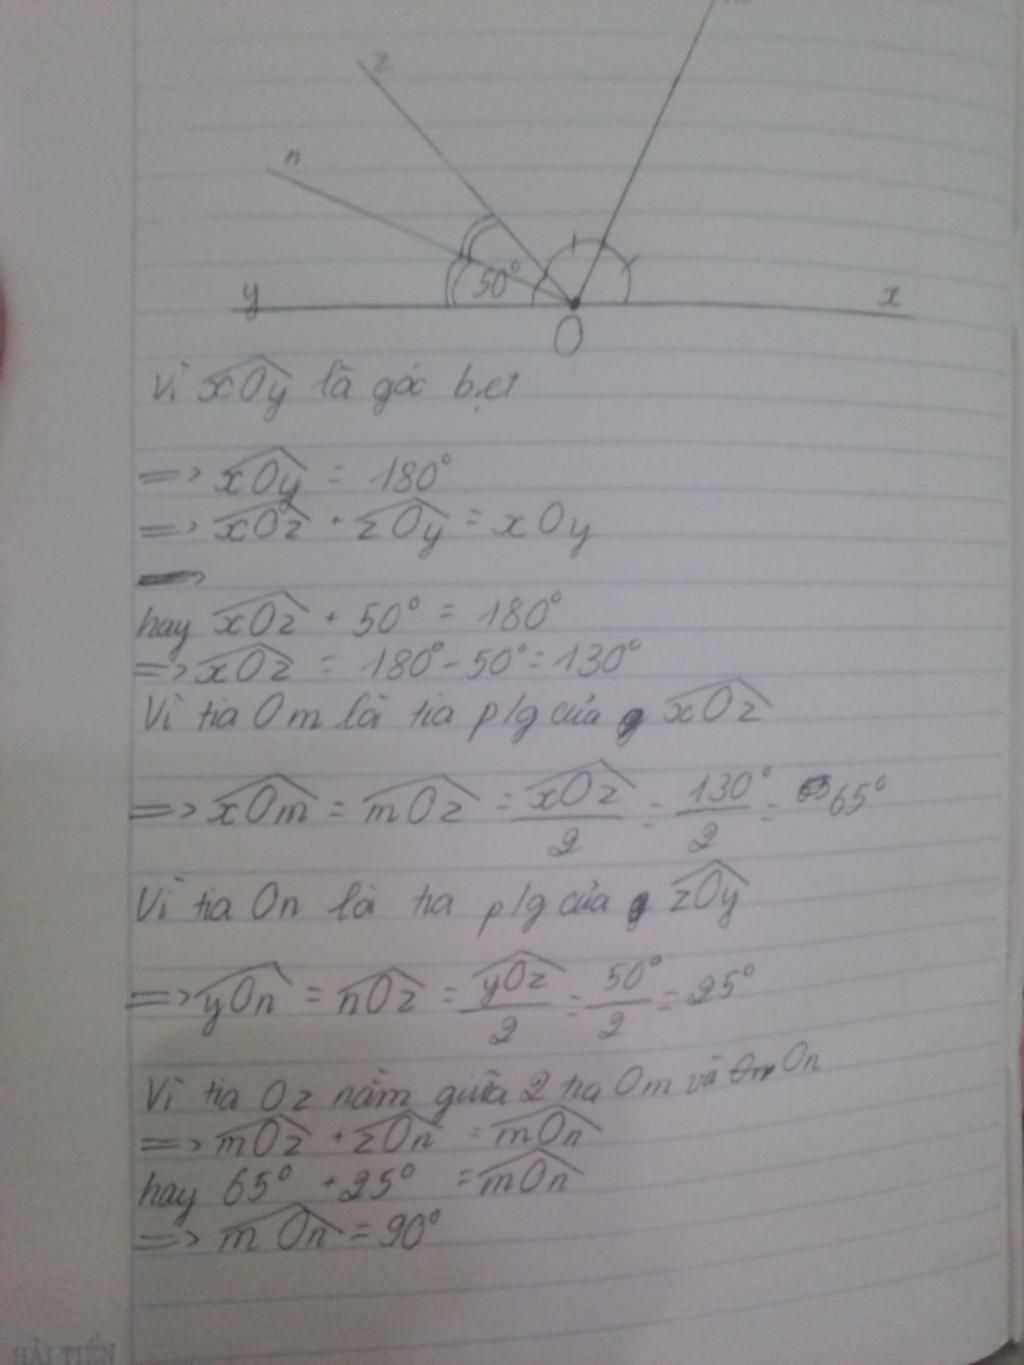 z
n
50°
y
x
O
Vì xOy là góc bẹt
=> xOy = 180°
=> xOz + zOy = xOy
hay xOz + 50° = 180°
=> xOz = 180° - 50° = 130°
Vì tia Om là tia p/g của xOz
=> xOm = mOz = xOz/2 = 130°/2 = 65°
Vì tia On là tia p/g của zOy
=> yOn = nOz = yOz/2 = 50°/2 = 25°
Vì tia Oz nằm giữa 2 tia Om và On
=> mOz + zOn = mOn
hay 65° + 25° = mOn
=> mOn = 90°
HẢI TIẾN